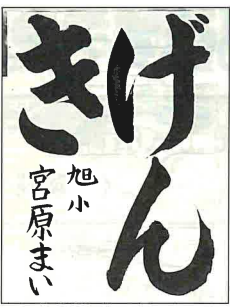 げん
き
旭小
宮原まい